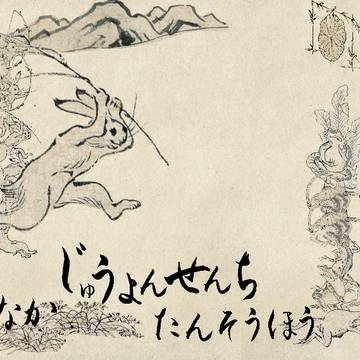 じゅうょんせんち
なか
たんそうほう